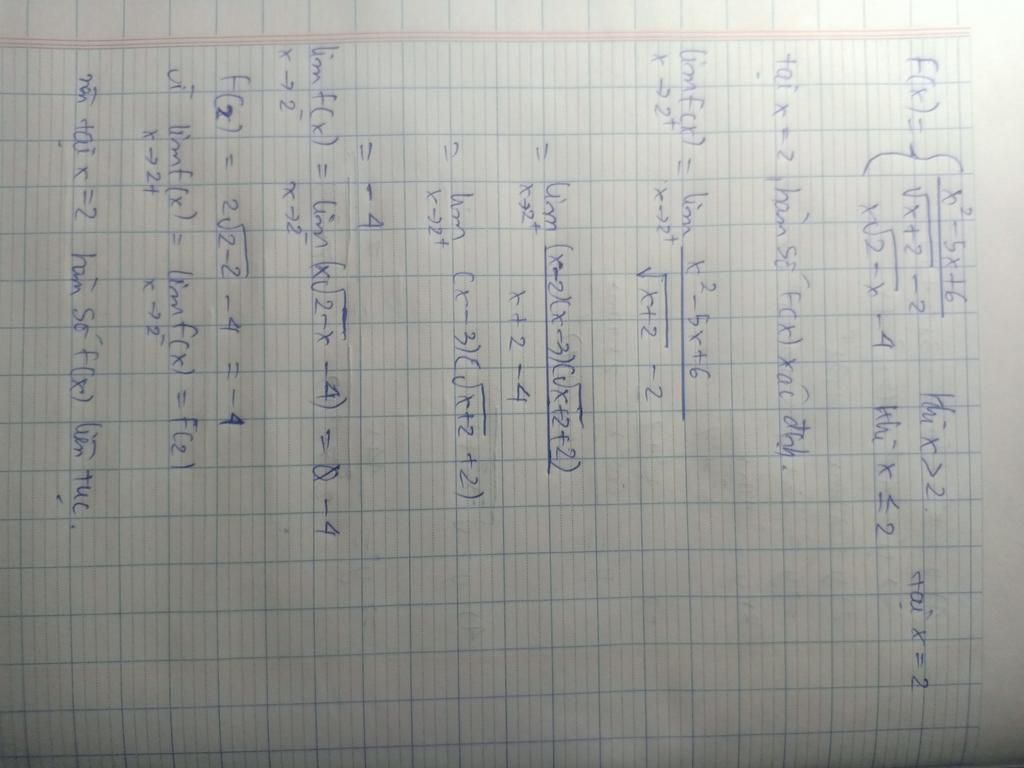 f(x) = { (x² - 5x + 6)/(√(x+2) - 2) khi x > 2 tại x = 2
x√(2-x) - 4 khi x ≤ 2
tại x = 2, hàm số f(x) xác định.
lim f(x) (x→2⁺) = lim (x→2⁺) (x² - 5x + 6)/(√(x+2) - 2)
= lim (x→2⁺) (x-2)(x-3)(√(x+2)+2)/(x + 2 - 4)
= lim (x→2⁺) (x-3)(√(x+2) + 2)
= -4
lim f(x) (x→2⁻) = lim (x→2⁻) (x√(2-x) - 4) = 0 - 4
f(2) = 2√(2-2) - 4 = -4
vì lim f(x) (x→2+) = lim f(x) (x→2⁻) = f(2)
nên tại x=2 hàm số f(x) liên tục.